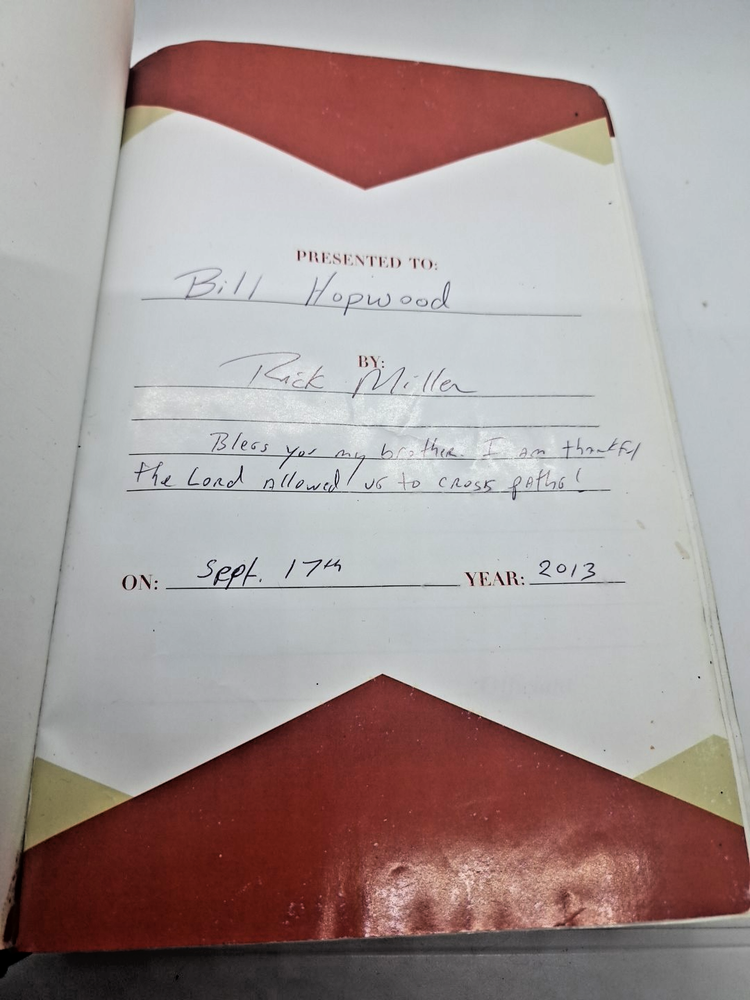 PRESENTED TO:
Bill Hopwood
BY:
Rick Miller
Bless you my brother. I am thankful
the Lord Allowed us to cross paths!
ON: Sept. 17th YEAR: 2013